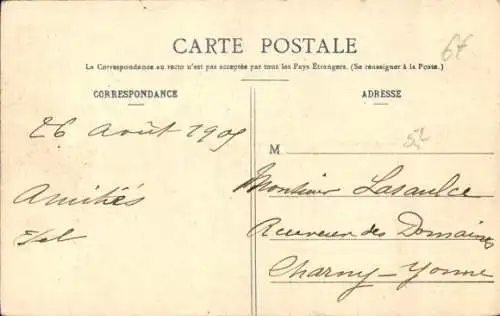 CARTE POSTALE
6f
La Correspondance au recto n'est pas acceptée par tous les Pays Étrangers. (Se renseigner à la Poste.)
CORRESPONDANCE
ADRESSE
52
26 Août 1905
M
Amitiés
Monsieur Lasaulce
Receveur des Domaines
Charny-Yonne